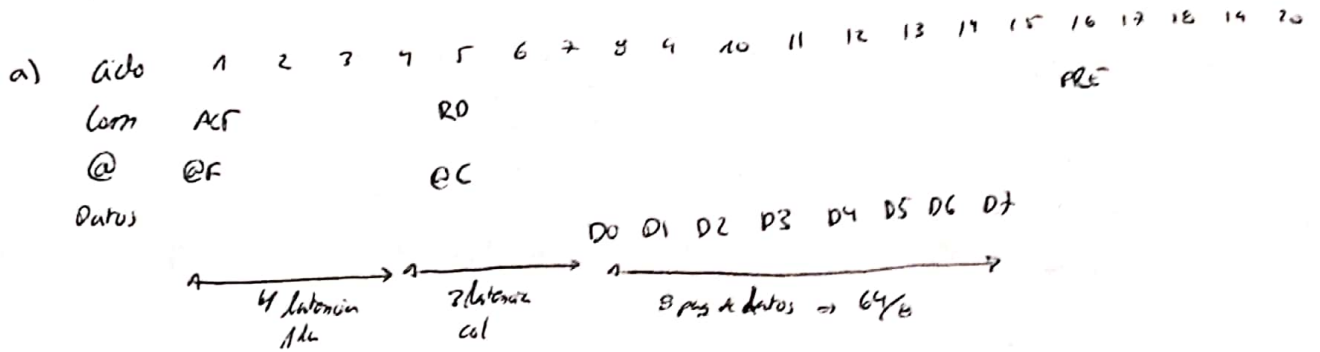 a) Ciclo 1 2 3 4 5 6 7 8 9 10 11 12 13 14 15 16 17 18 19 20
Com ACT RD PRE
@ @F @C
Datos D0 D1 D2 D3 D4 D5 D6 D7
4 latencia 3 latencia 8 paq de datos => 64/8
col